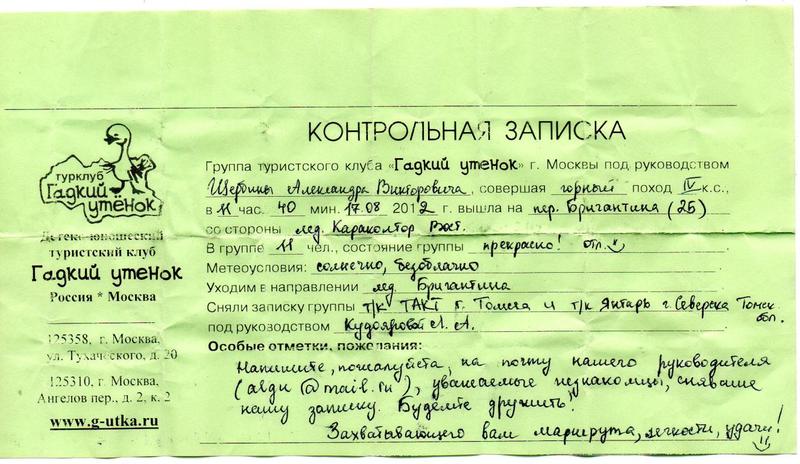 КОНТРОЛЬНАЯ ЗАПИСКА
Группа туристского клуба «Гадкий утенок» г. Москвы под руководством
Щербины Александра Викторовича, совершая горный поход IV к.с.,
в 11 час. 40 мин. 17.08 2012 г. вышла на пер. Бригантина (2Б)
со стороны лед. Караколтор Вост.
В группе 11 чел., состояние группы прекрасно! отл.
Метеоусловия: солнечно, безоблачно
Уходим в направлении лед. Бригантина
Сняли записку группы т/к ТАКТ г. Томска и т/к Янтарь г. Северска Томск. обл.
под руководством Кудояровой А. А.
Особые отметки, пожелания:
Напишите, пожалуйста, на почту нашего руководителя
(aldu@mail.ru), уважаемые незнакомцы, снявшие
нашу записку. Будемте дружить!
Захватывающего вам маршрута, лёгкости, удачи!
турклуб
Гадкий
утёнок
Детско-юношеский
туристский клуб
Гадкий утенок
Россия * Москва
125358, г. Москва,
ул. Тухачевского, д. 20
125310, г. Москва,
Ангелов пер., д. 2, к. 2
www.g-utka.ru